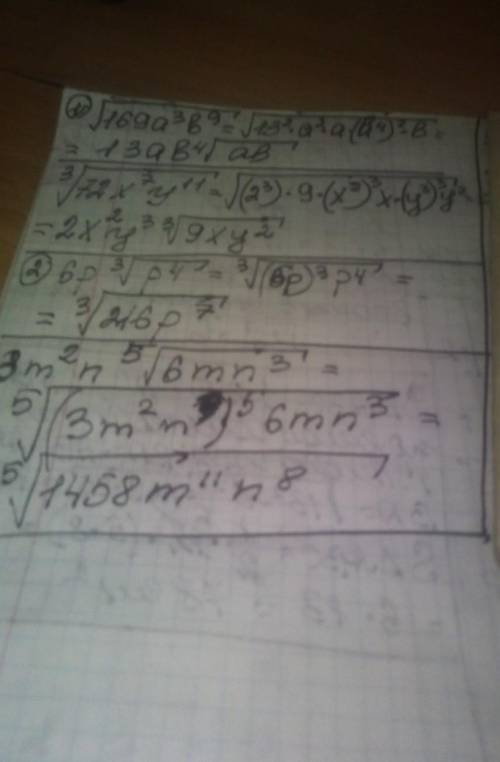 1) √169a³b⁹ = √13²·a²·a(b⁴)²·b =
= 13ab⁴√ab
³√72x⁷y¹¹ = √(2³)·9·(x²)³x·(y³)³y² =
= 2x²y³ ³√9xy²
2) 6p ³√p⁴ = ³√(6p)³p⁴ =
= ³√216p⁷
3m²n ⁵√6mn³ =
⁵√(3m²n)⁵6mn³ =
⁵√1458m¹¹n⁸